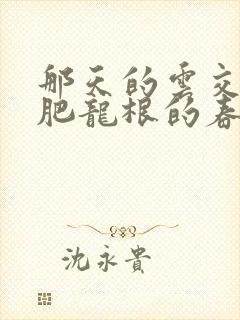 那天的雲交
肥龍根的春
沈永貴